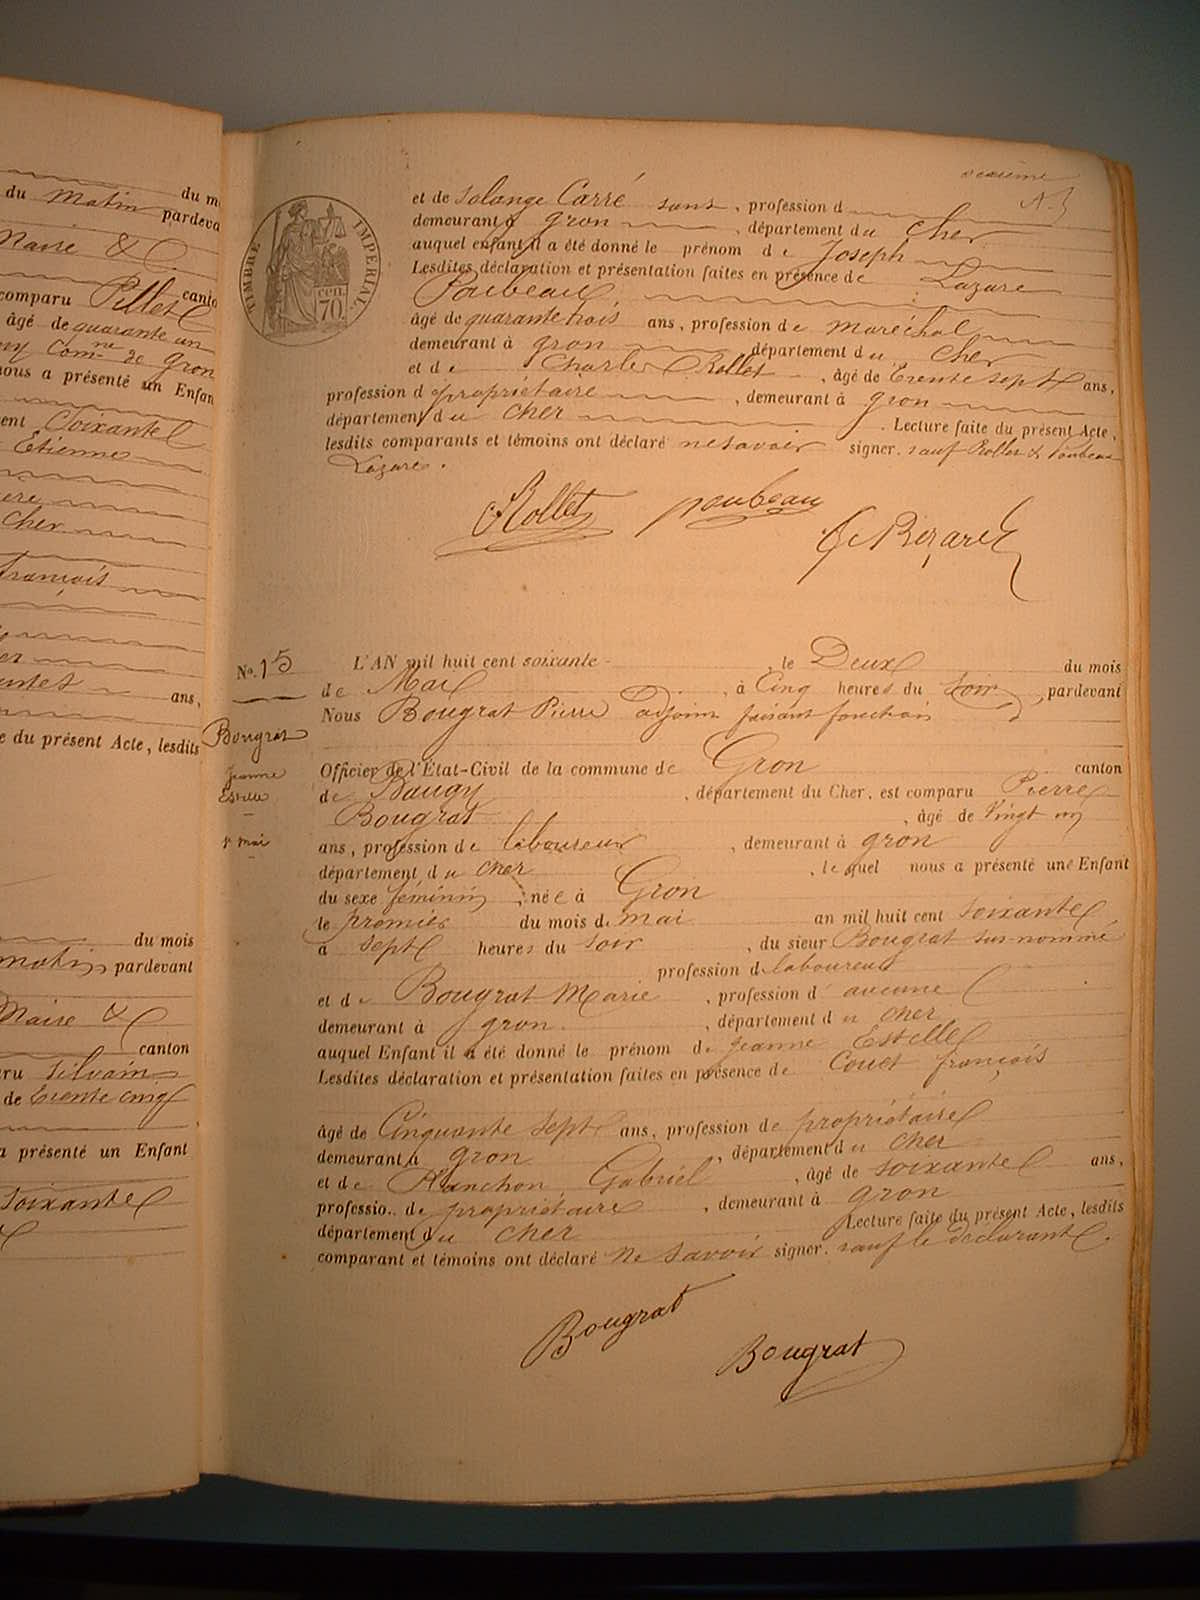 du m
du matin pardeva
Maire &
canto
comparu Pillet
âgé de quarante un
Comne de Gron
nous a présenté un Enfan
ent Soixante
Etienne
cher
françois
ans,
e du présent Acte, lesdits
du mois
matin pardevant
Maire &
canton
ru Silvain
de trente cinq
a présenté un Enfant
Soixante
TIMBRE IMPERIAL
70 cen.
et de Solange Carré sans, profession d
demeurant à gron, département du cher
auquel enfant il a été donné le prénom de Joseph
Lesdites déclaration et présentation faites en présence de Lazare
Poubeau
âgé de quarante trois ans, profession de maréchal
demeurant à gron département du cher
et de Charles Rollet, âgé de trente sept ans,
profession d propriétaire, demeurant à gron
département du cher. Lecture faite du présent Acte,
lesdits comparants et témoins ont déclaré ne savoir signer. sauf Rollet & Poubeau
Lazare.
Rollet poubeau
No. 15 L'AN mil huit cent soixante, le Deux du mois
de Mai, à Cinq heures du soir, pardevant
Nous Bougrat Pierre adjoint faisant fonctions
Bougrat
Jeanne
Estelle
1er mai
Officier de l'État-Civil de la commune de Gron canton
de Baugy, département du Cher, est comparu Pierre
Bougrat, âgé de vingt un
ans, profession de laboureur, demeurant à gron
département du cher, lequel nous a présenté une Enfant
du sexe féminin, née à Gron
le premier du mois de mai an mil huit cent soixante
à sept heures du soir, du sieur Bougrat sus-nommé
profession de laboureur
et de Bougrat Marie, profession d' aucune
demeurant à gron, département du cher
auquel Enfant il a été donné le prénom de Jeanne Estelle
Lesdites déclaration et présentation faites en présence de Couet françois
âgé de Cinquante sept ans, profession de propriétaire
demeurant à gron, département du cher
et de Ranchon Gabriel, âgé de soixante ans,
profession de propriétaire, demeurant à gron
département du cher Lecture faite du présent Acte, lesdits
comparant et témoins ont déclaré ne savoir signer. sauf le déclarant.
Bougrat
Bougrat